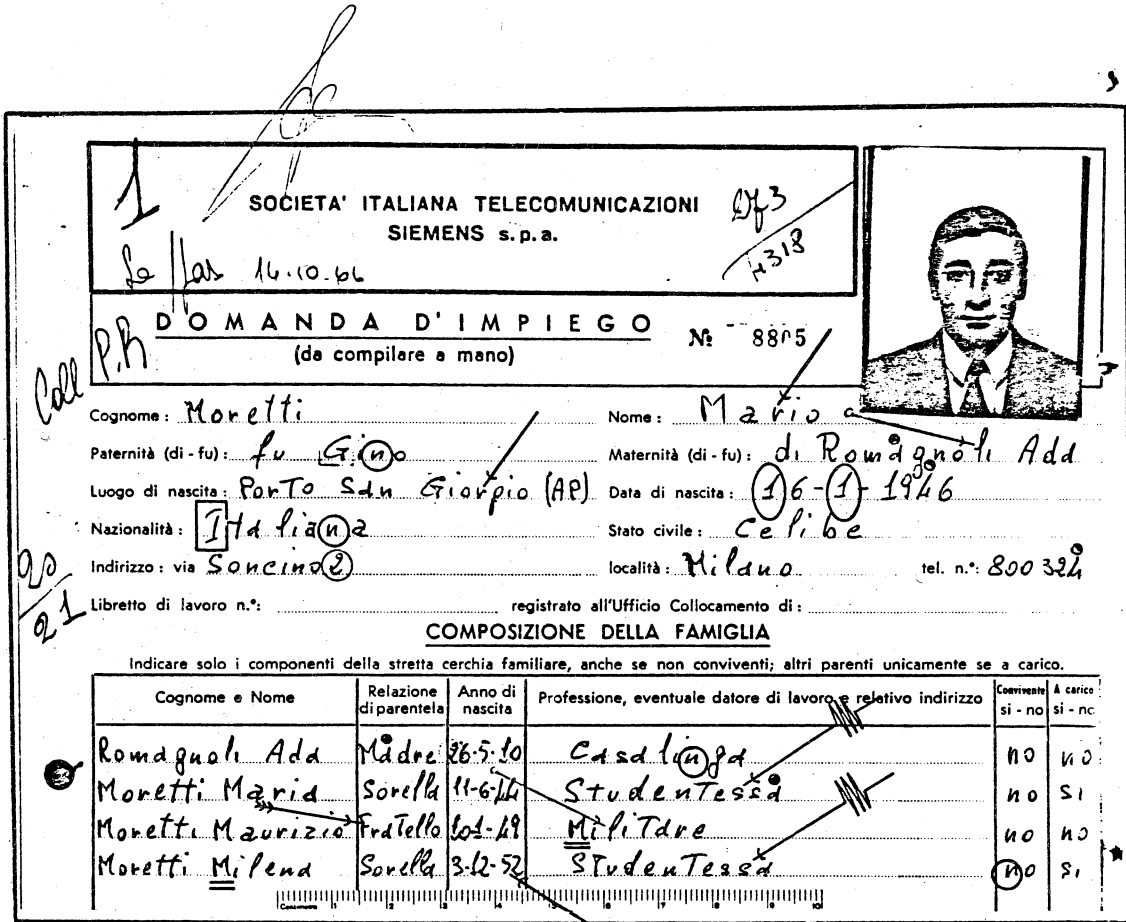 1
SOCIETA' ITALIANA TELECOMUNICAZIONI
SIEMENS s.p.a.
4318
14.10.66
DOMANDA D'IMPIEGO
(da compilare a mano)
N: 8805
Coll P.R
Cognome: Moretti Nome: Mario
Paternità (di - fu): fu Gino Maternità (di - fu): di Romagnoli Ada
Luogo di nascita: Porto San Giorgio (AP) Data di nascita: 16-1-1946
Nazionalità: Italiana Stato civile: Celibe
Indirizzo: via Soncino 2 località: Milano tel. n.°: 800324
20
21
Libretto di lavoro n.°: registrato all'Ufficio Collocamento di:
COMPOSIZIONE DELLA FAMIGLIA
Indicare solo i componenti della stretta cerchia familiare, anche se non conviventi; altri parenti unicamente se a carico.
Cognome e Nome Relazione di parentela Anno di nascita Professione, eventuale datore di lavoro e relativo indirizzo Convivente si - no A carico si - no
Romagnoli Ada Madre 26-5-10 Casalinga no no
Moretti Maria Sorella 11-6-44 Studentessa no si
Moretti Maurizio Fratello Militare no no
Moretti Milena Sorella 3-12-52 Studentessa no si
Centimetre 1 2 3 4 5 6 7 8 9 10